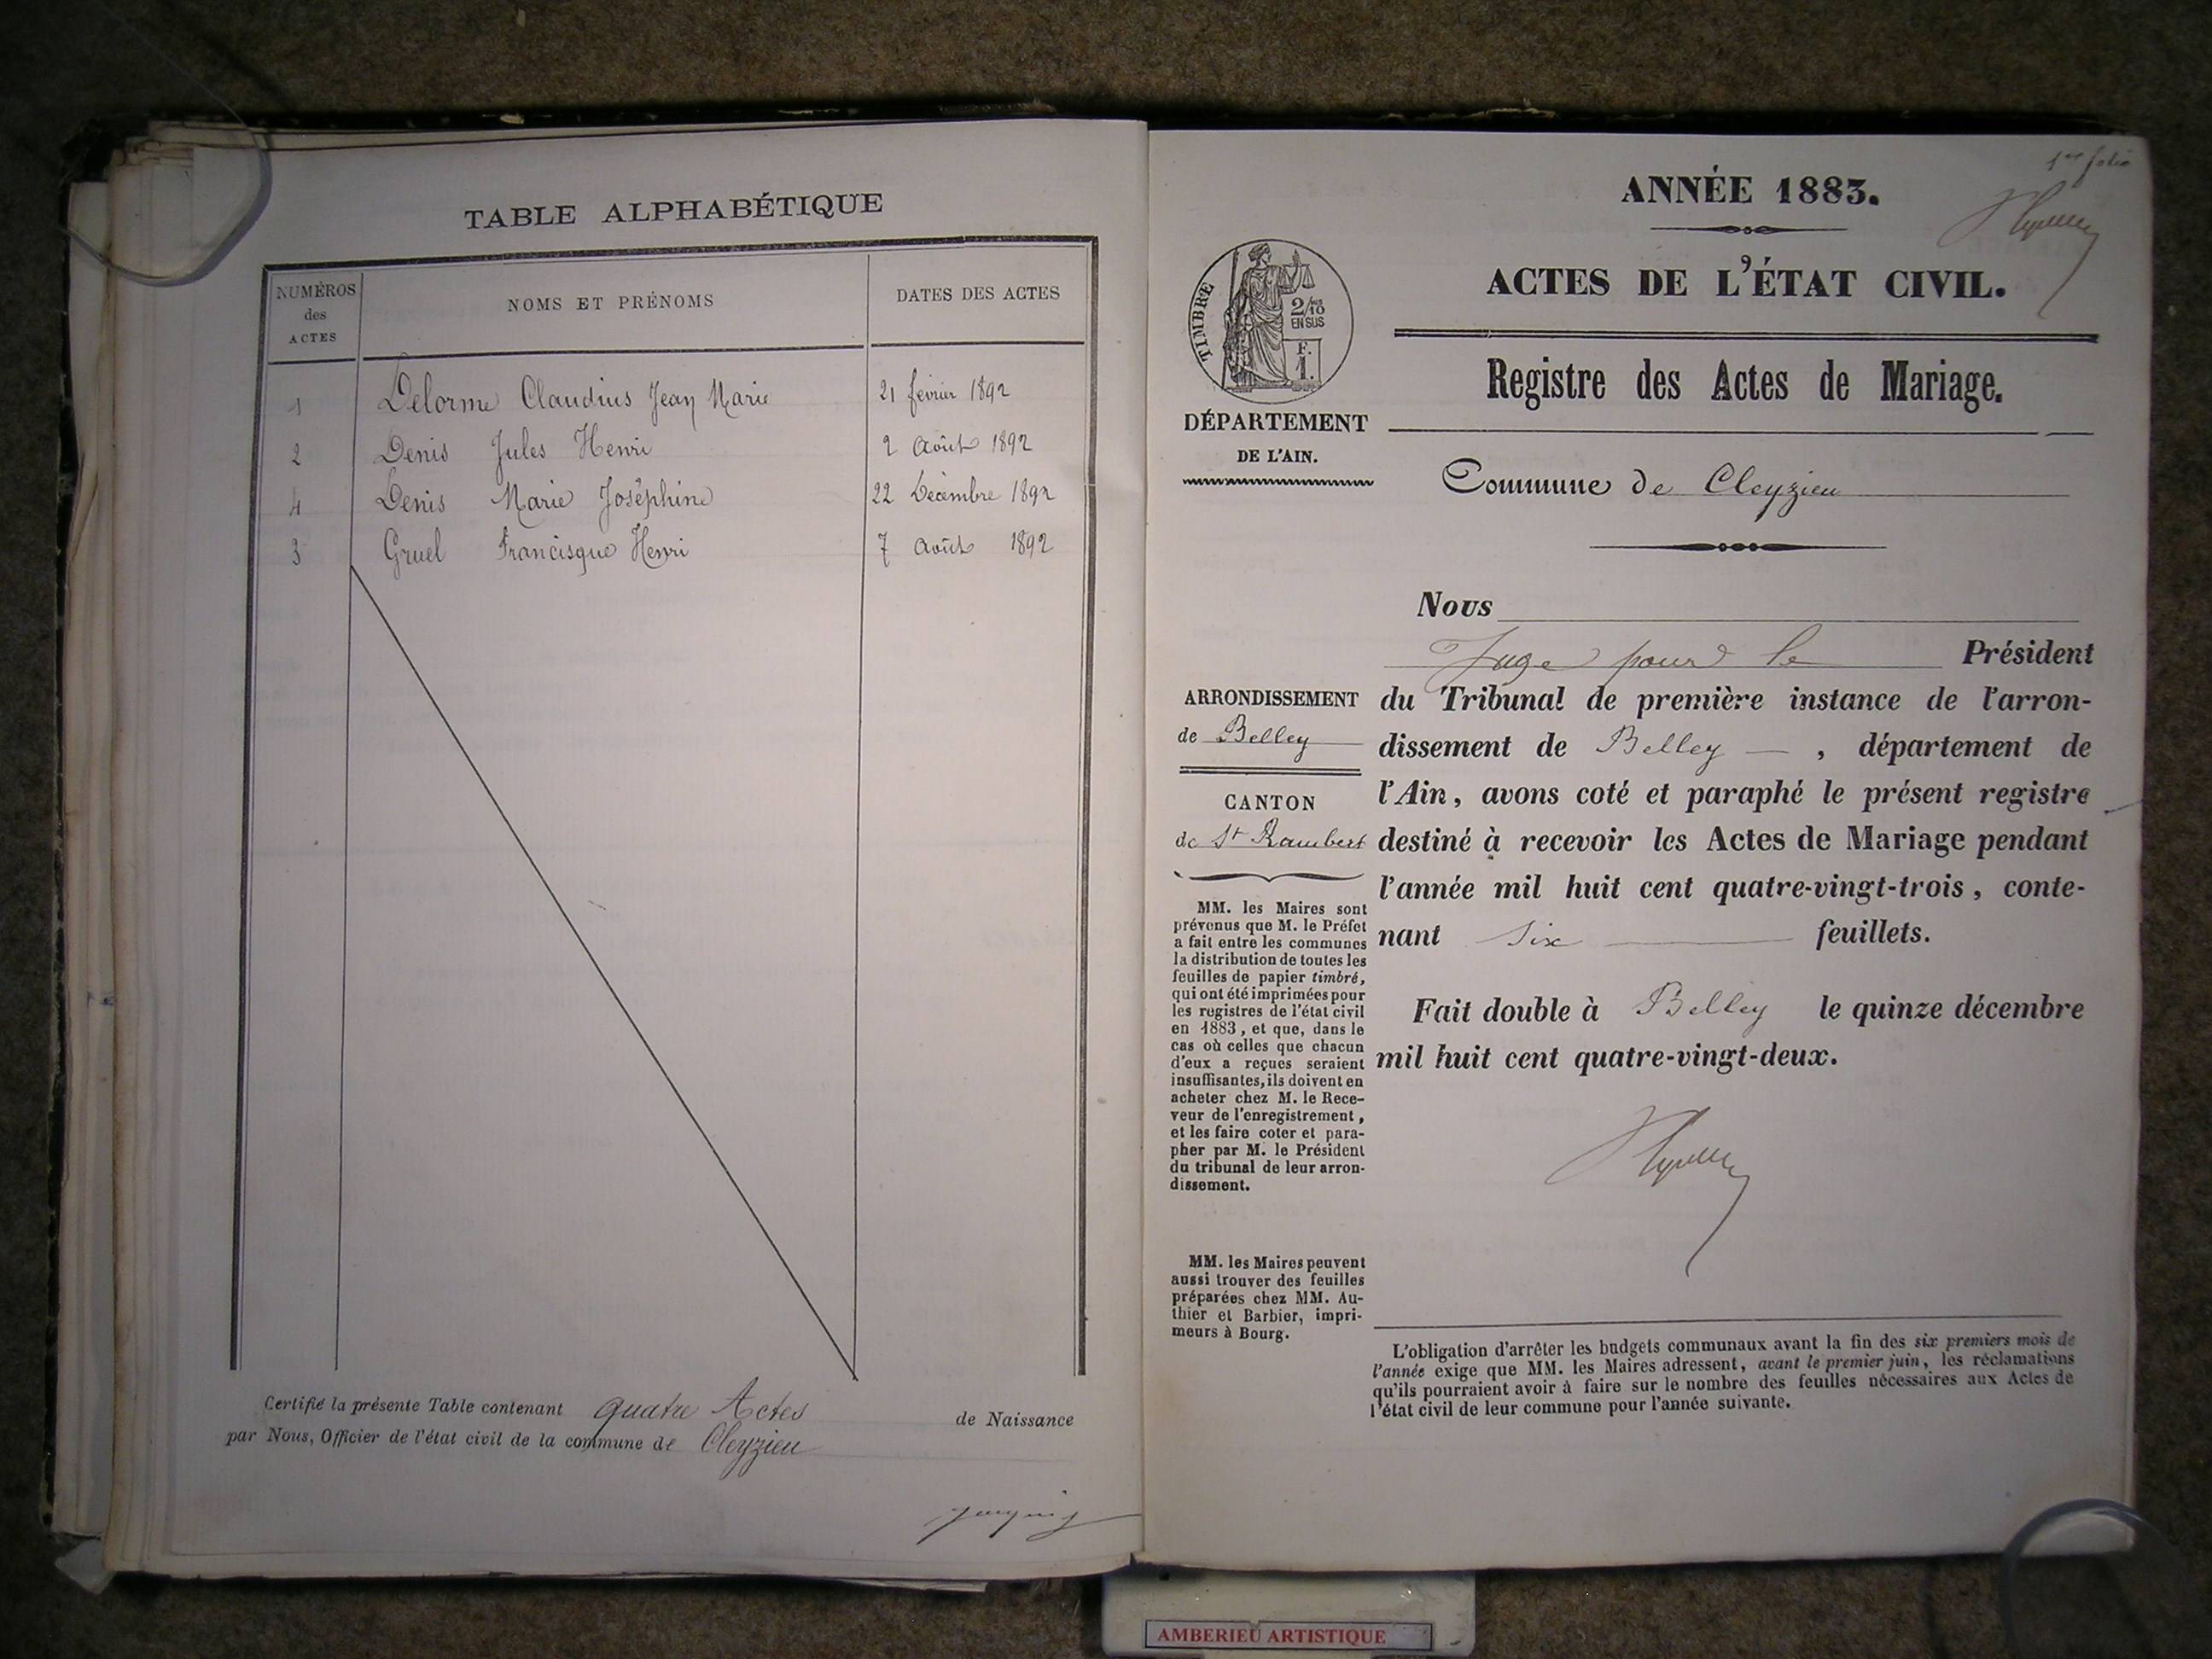 TABLE ALPHABÉTIQUE
NUMÉROS
des
ACTES
NOMS ET PRÉNOMS
DATES DES ACTES
1 Delorme Claudius Jean Marie 21 février 1892
2 Denis Jules Henri 2 Août 1892
4 Denis Marie Joséphine 22 Décembre 1892
3 Gruel Francisque Henri 7 Août 1892
Certifié la présente Table contenant quatre Actes de Naissance
par Nous, Officier de l'état civil de la commune de Cleyzieu
1er folio
ANNÉE 1883.
ACTES DE L'ÉTAT CIVIL.
TIMBRE
2/10
EN SUS
F.
1.
Registre des Actes de Mariage.
DÉPARTEMENT
DE L'AIN.
Commune de Cleyzieu
Nous
Juge pour le Président
ARRONDISSEMENT
de Belley
CANTON
de St Rambert
du Tribunal de première instance de l'arron-
dissement de Belley — , département de
l'Ain, avons coté et paraphé le présent registre
destiné à recevoir les Actes de Mariage pendant
l'année mil huit cent quatre-vingt-trois, conte-
nant six feuillets.
Fait double à Belley le quinze décembre
mil huit cent quatre-vingt-deux.
MM. les Maires sont
prévenus que M. le Préfet
a fait entre les communes
la distribution de toutes les
feuilles de papier timbré,
qui ont été imprimées pour
les registres de l'état civil
en 1883, et que, dans le
cas où celles que chacun
d'eux a reçues seraient
insuffisantes, ils doivent en
acheter chez M. le Rece-
veur de l'enregistrement,
et les faire coter et para-
pher par M. le Président
du tribunal de leur arron-
dissement.
MM. les Maires peuvent
aussi trouver des feuilles
préparées chez MM. Au-
thier et Barbier, impri-
meurs à Bourg.
L'obligation d'arrêter les budgets communaux avant la fin des six premiers mois de
l'année exige que MM. les Maires adressent, avant le premier juin, les réclamations
qu'ils pourraient avoir à faire sur le nombre des feuilles nécessaires aux Actes de
l'état civil de leur commune pour l'année suivante.
AMBERIEU ARTISTIQUE